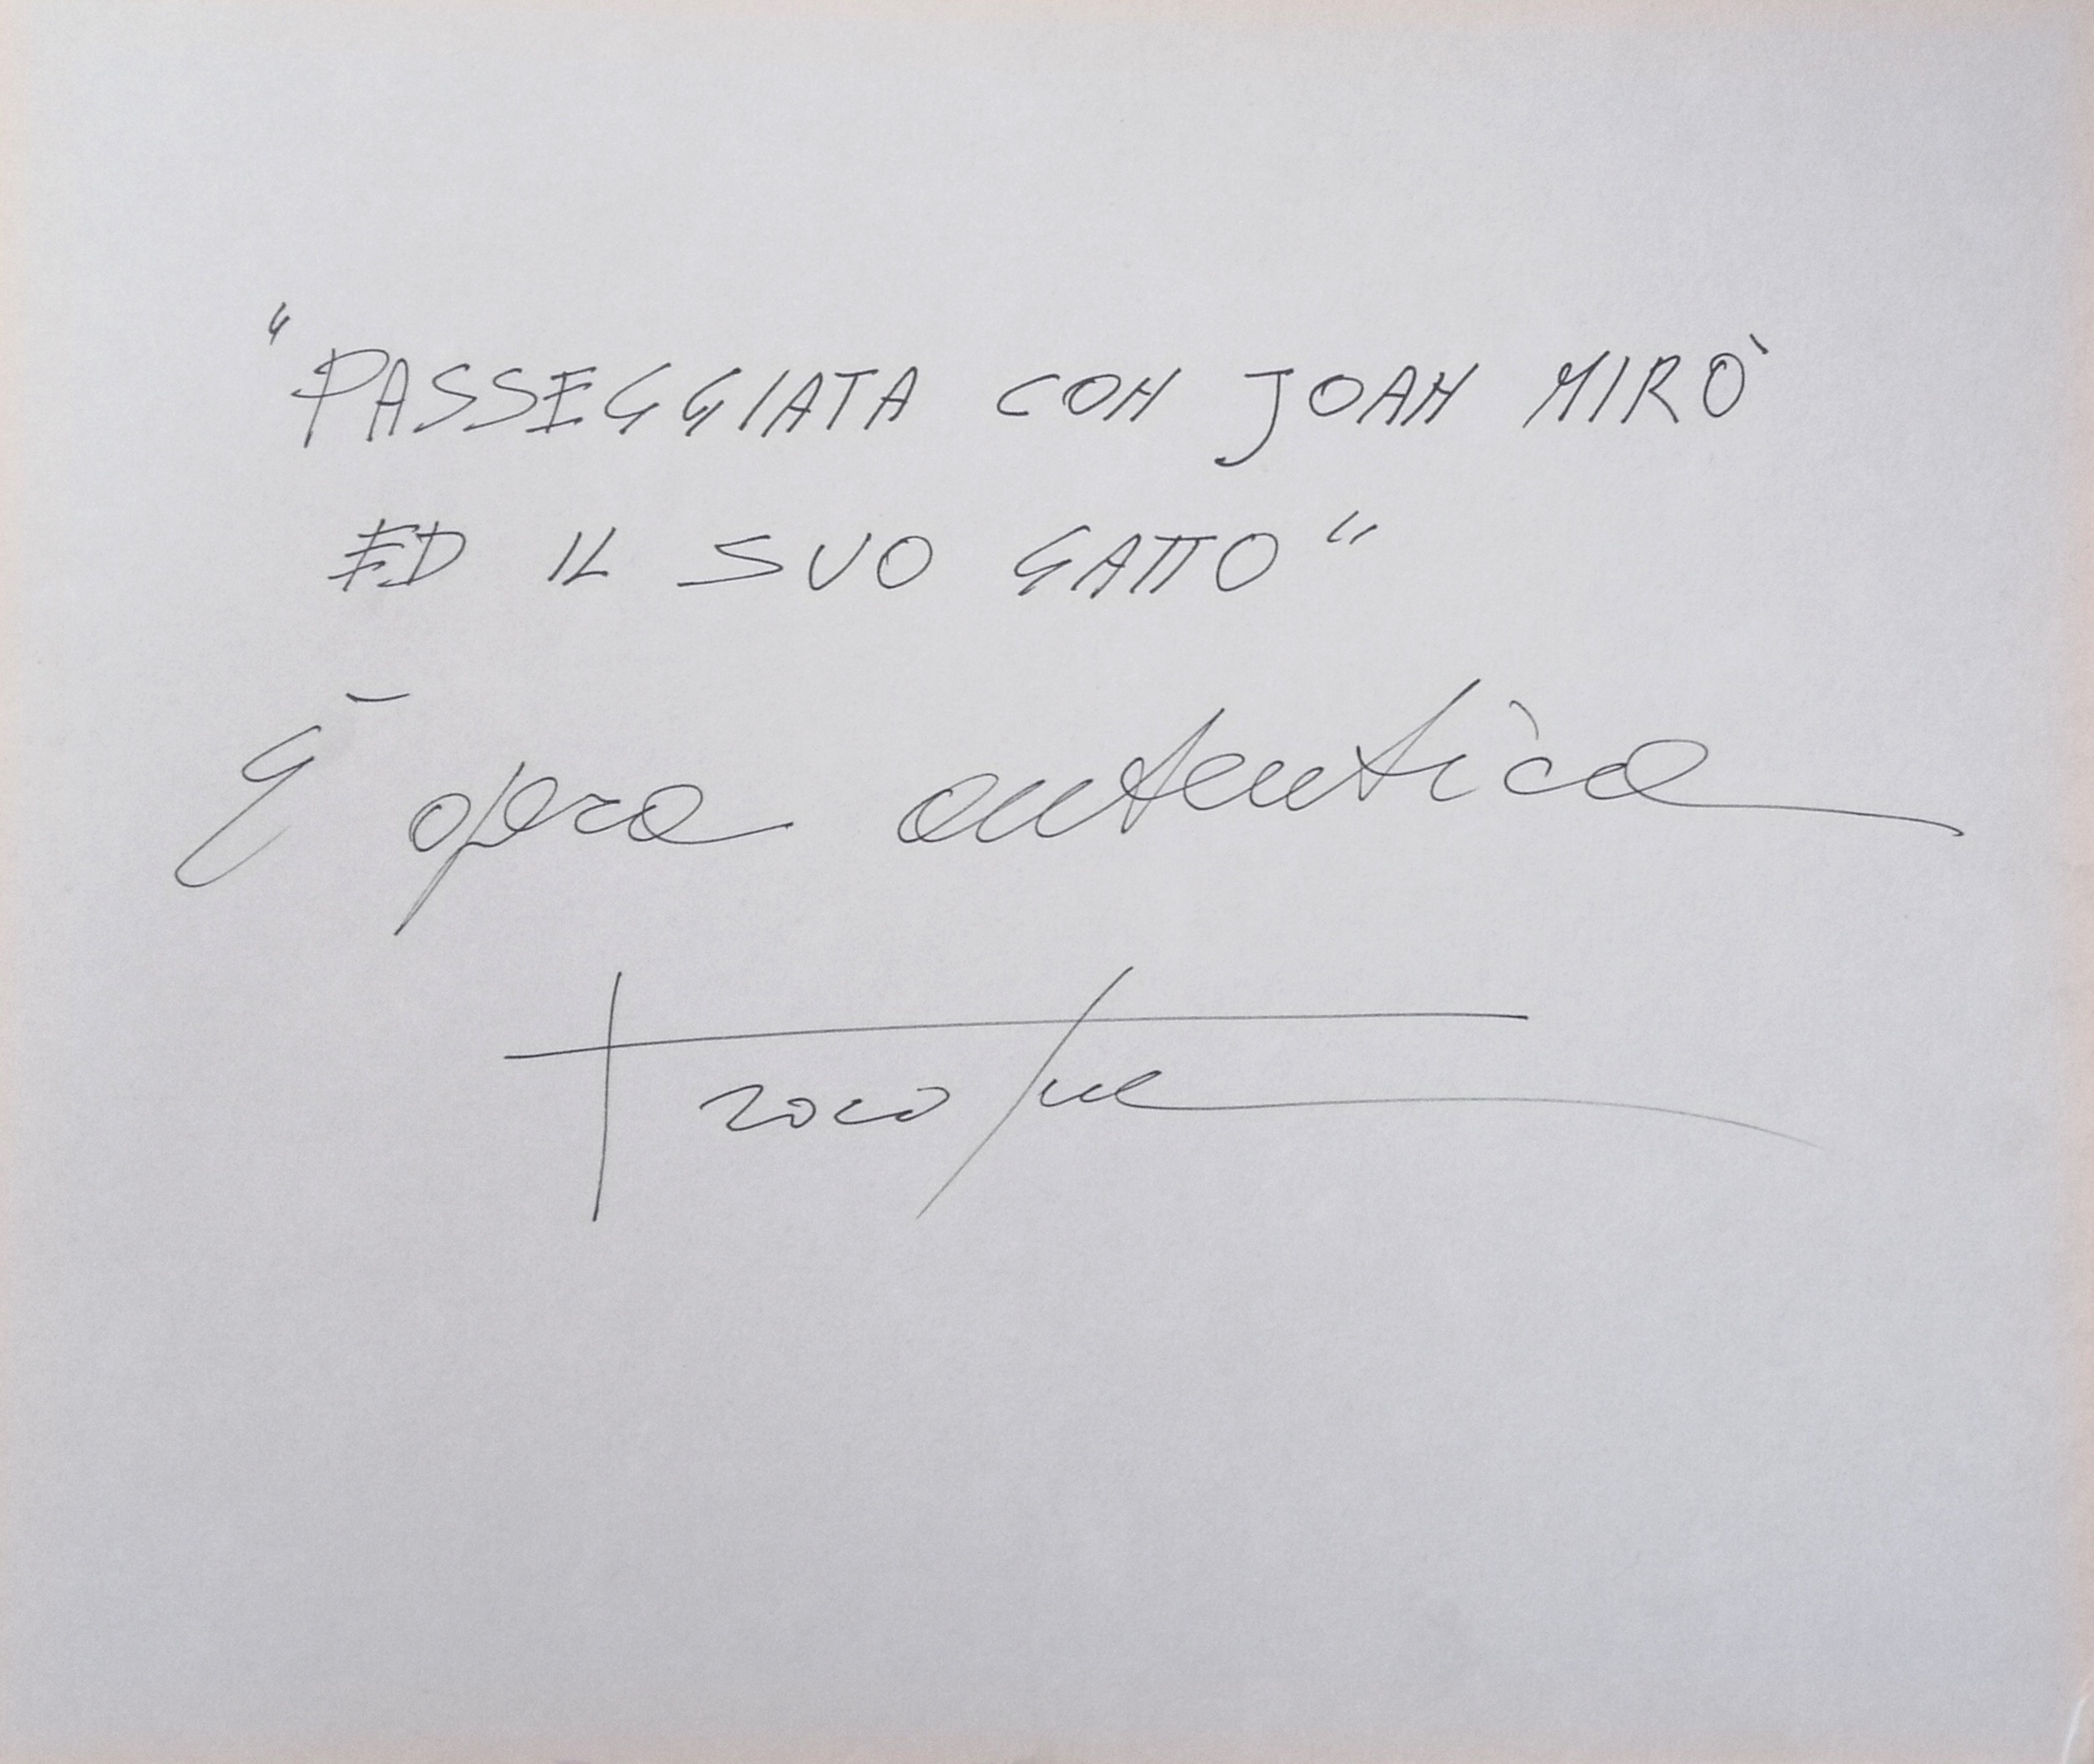 "PASSEGGIATA CON JOAN MIRÒ
ED IL SUO GATTO"
È opera autentica